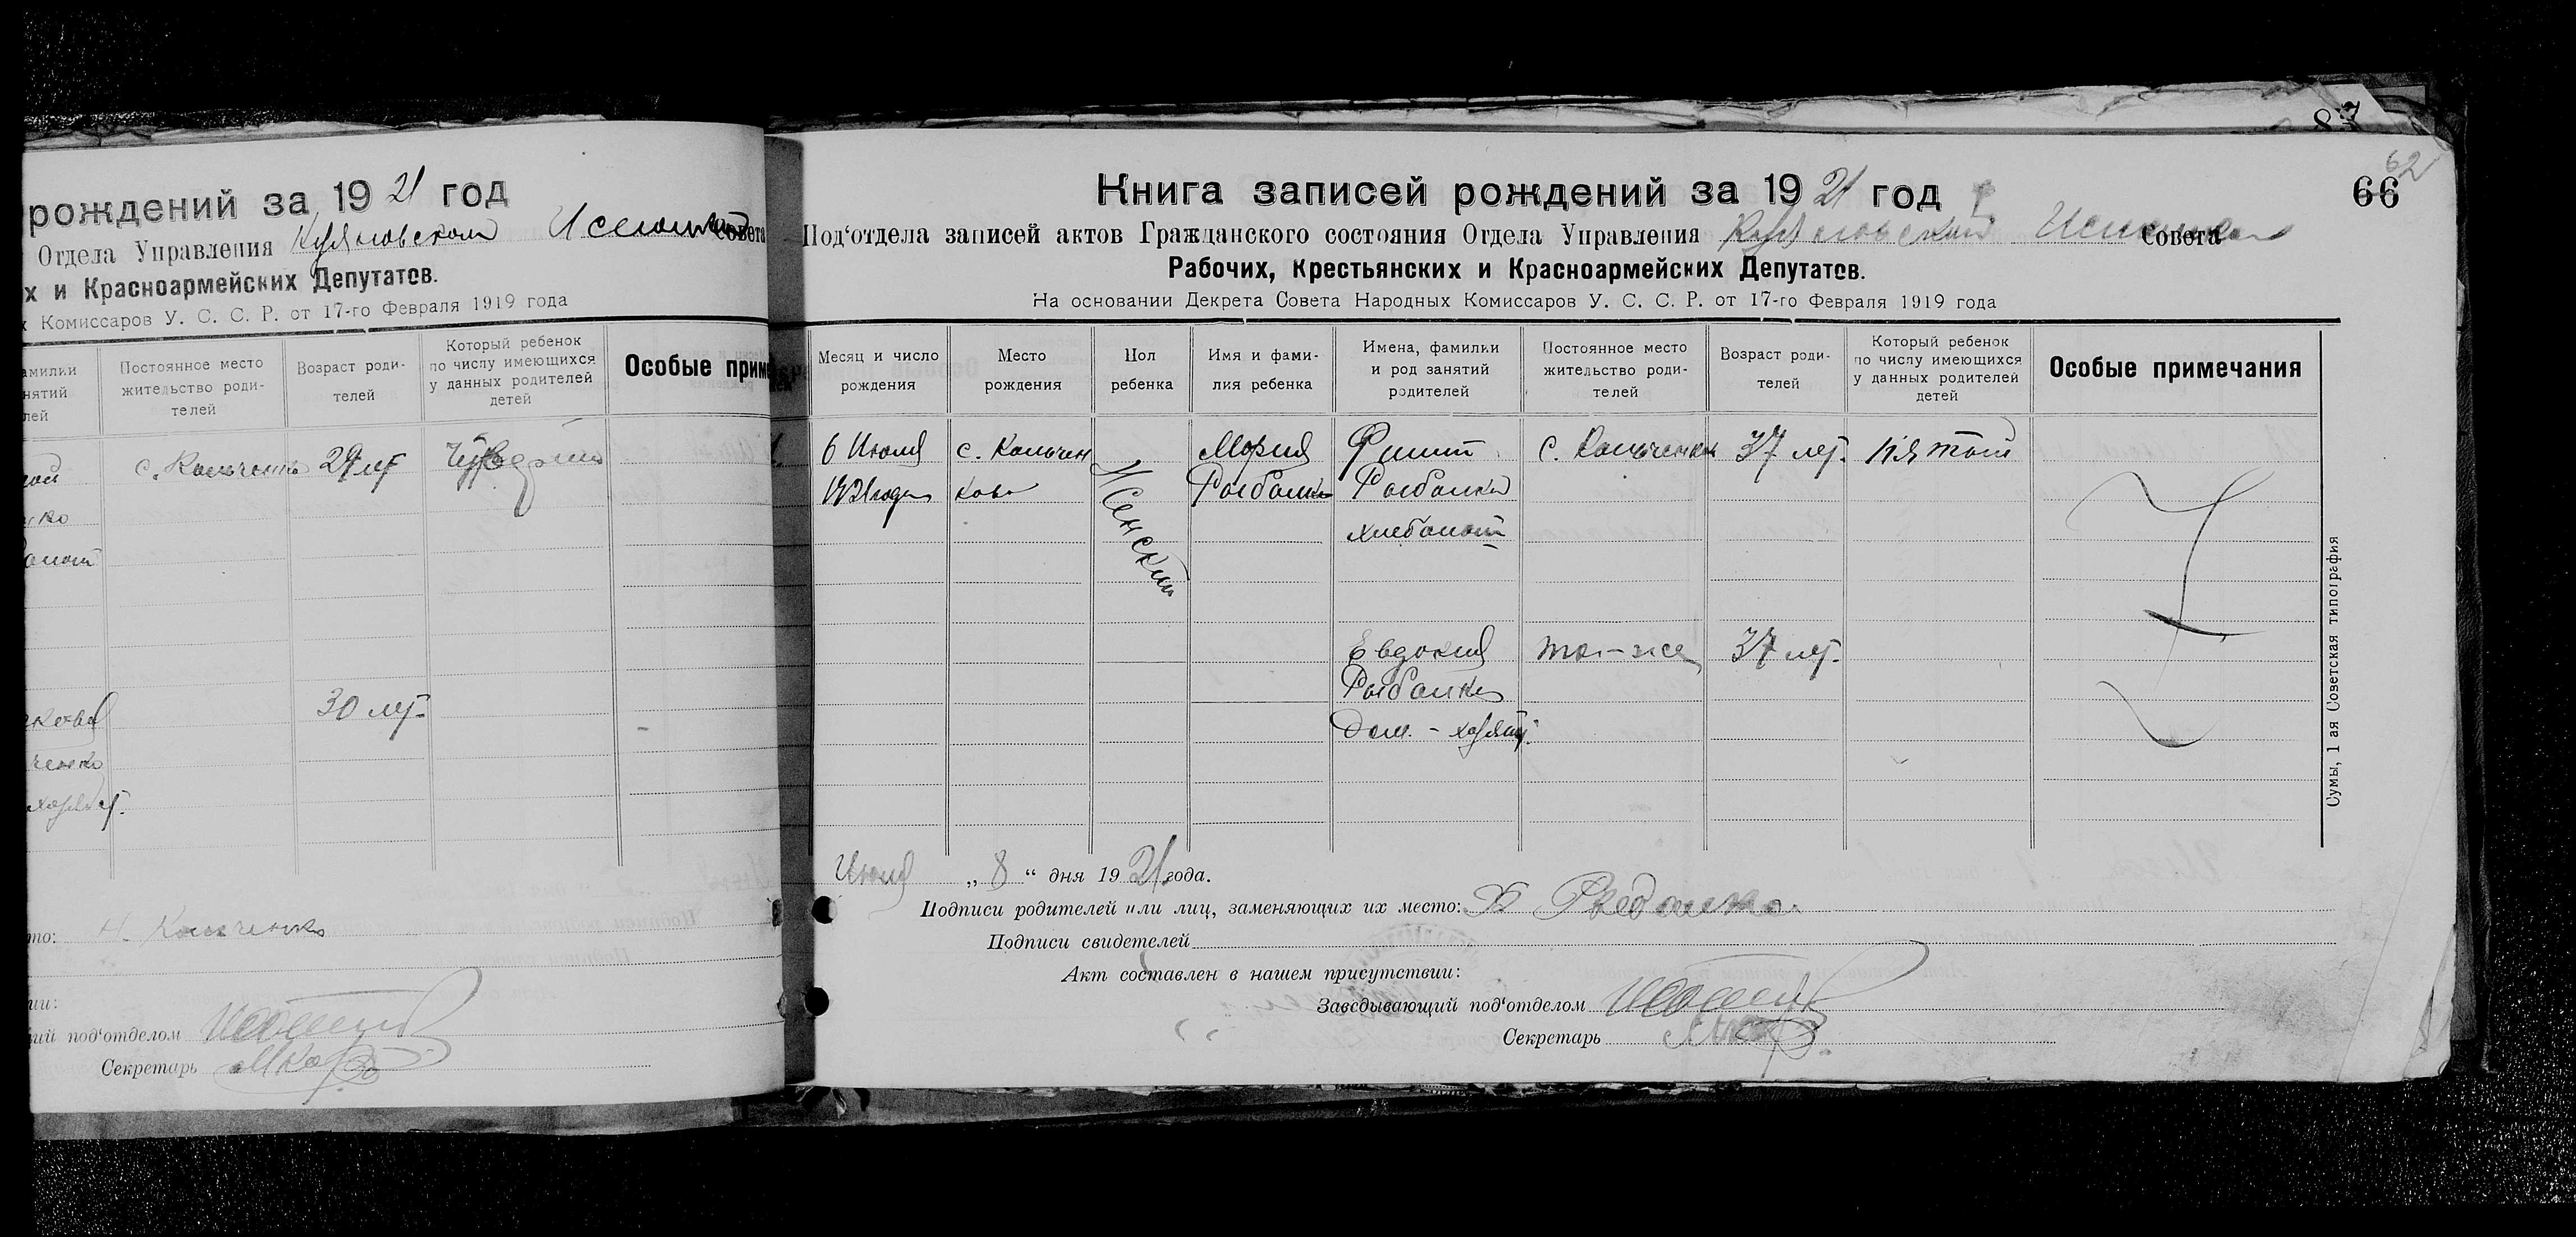 рождений за 1921 год
Отдела Управления
Совета
х и Красноармейских Депутатов.
х Комиссаров У. С. С. Р. от 17-го Февраля 1919 года
амилии
нятий
лей
Постоянное место
жительство роди-
телей
Возраст роди-
телей
Который ребенок
по числу имеющихся
у данных родителей
детей
Особые приме
29 лет
30 лет
то:
ии:
ий под‘отделом
Секретарь
87
62
66
Книга записей рождений за 1921 год
Под‘отдела записей актов Гражданского состояния Отдела Управления
Совета
Рабочих, Крестьянских и Красноармейских Депутатов.
На основании Декрета Совета Народных Комиссаров У. С. С. Р. от 17-го Февраля 1919 года
Месяц и число
рождения
Место
рождения
Пол
ребенка
Имя и фами-
лия ребенка
Имена, фамилии
и род занятий
родителей
Постоянное место
жительство роди-
телей
Возраст роди-
телей
Который ребенок
по числу имеющихся
у данных родителей
детей
Особые примечания
6 Июля
1921 года
с. Кальчен
кова
Женский
Мария
Рыбалка
Филип
Рыбалка
хлебопаш
37 лет.
пятый
Евдокия
Рыбалка
дом. - хозяй.
там-же
37 лет.
Сумы, 1 ая Советская типография
Июля „8“ дня 1921 года.
Подписи родителей или лиц, заменяющих их место: Ф Рыбалка
Подписи свидетелей
Акт составлен в нашем присутствии:
Заведывающий под‘отделом
Секретарь